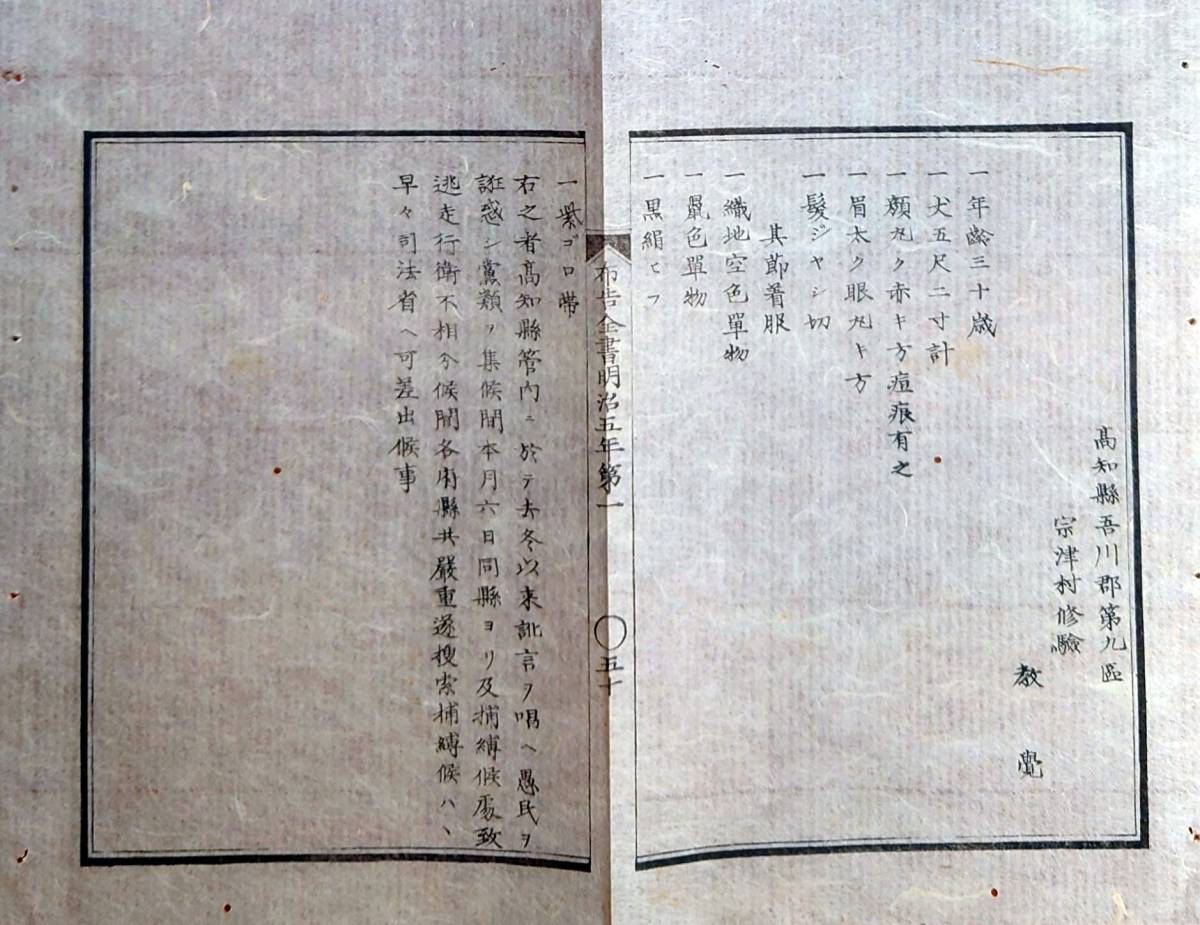 高知縣吾川郡第九區
宗津村修驗
教覺
一年齢三十歳
一丈五尺二寸計
一顔丸ク赤キ方痘痕有之
一眉太ク眼丸キ方
一髮ジヤシ切
其節着服
一織地空色單物
一鼠色單物
一黒絹ヒフ
布告全書明治五年第一
〇五十
一紫ゴロ帶
右之者高知縣管内ニ於テ去冬以来訛言ヲ唱ヘ愚民ヲ
誑惑シ黨類ヲ集候間本月六日同縣ヨリ及捕縛候處致
逃走行衛不相分候間各府縣共嚴重遂搜索捕縛候ハヽ
早々司法省ヘ可差出候事